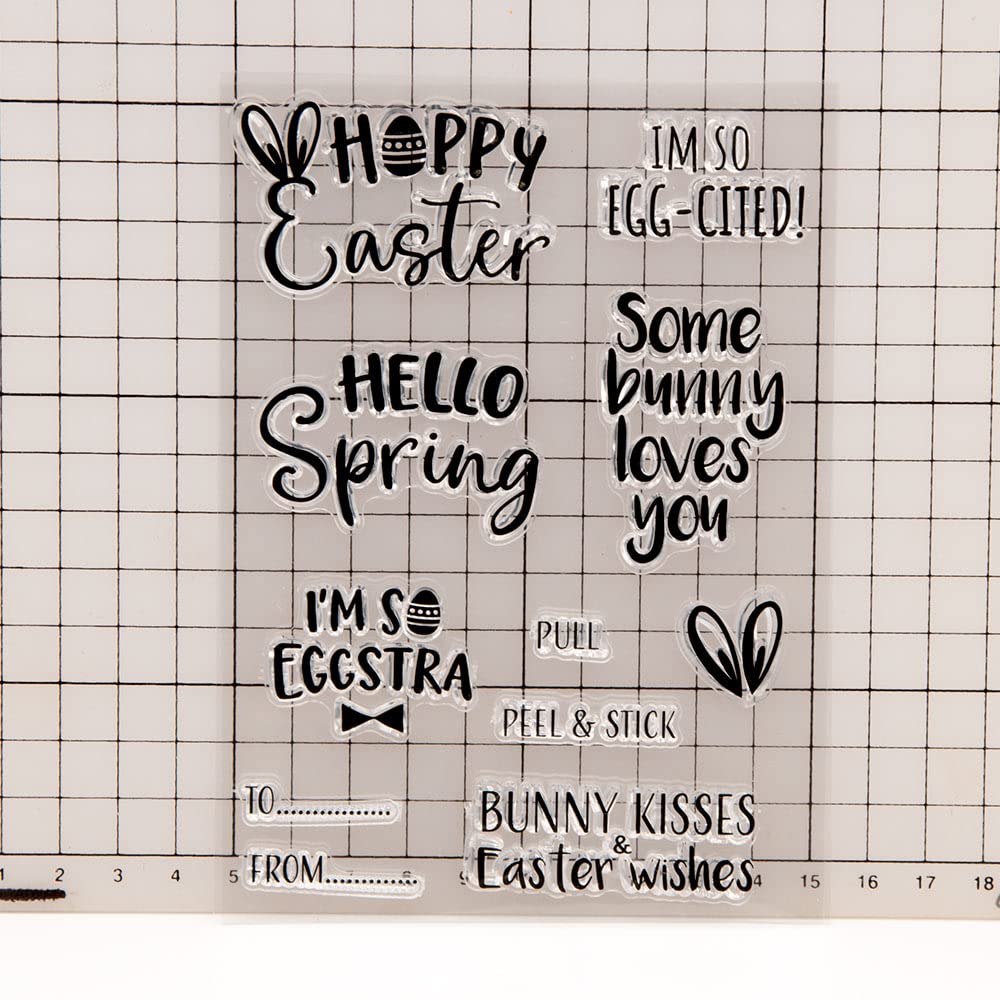 HAPPY
Easter
IM SO
EGG-CITED!
HELLO
Spring
Some
bunny
loves
you
I'M SO
EGGSTRA
PULL
PEEL & STICK
TO...............
FROM............
BUNNY KISSES
&
Easter wishes
1 2 3 4 5 6 7 8 9 14 15 16 17 18